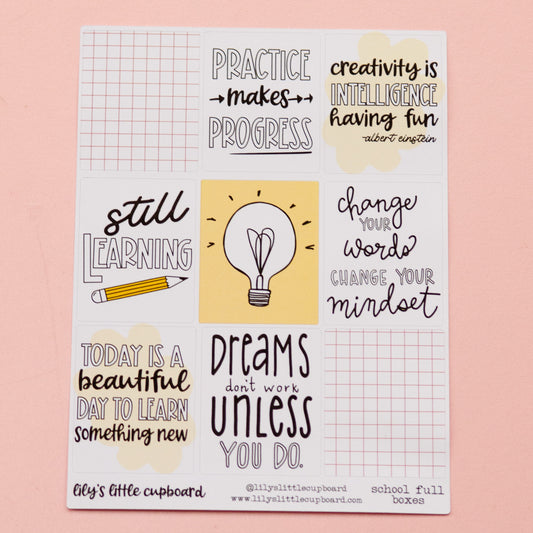 PRACTICE
makes
PROGRESS
creativity is
INTELLIGENCE
having fun
-albert einstein
still
LEARNING
change
YOUR
words
CHANGE YOUR
mindset
TODAY IS A
beautiful
DAY TO LEARN
something new
DREAMS
don't work
UNLESS
YOU DO.
lily's little cupboard
@lilyslittlecupboard
www.lilyslittlecupboard.com
school full
boxes